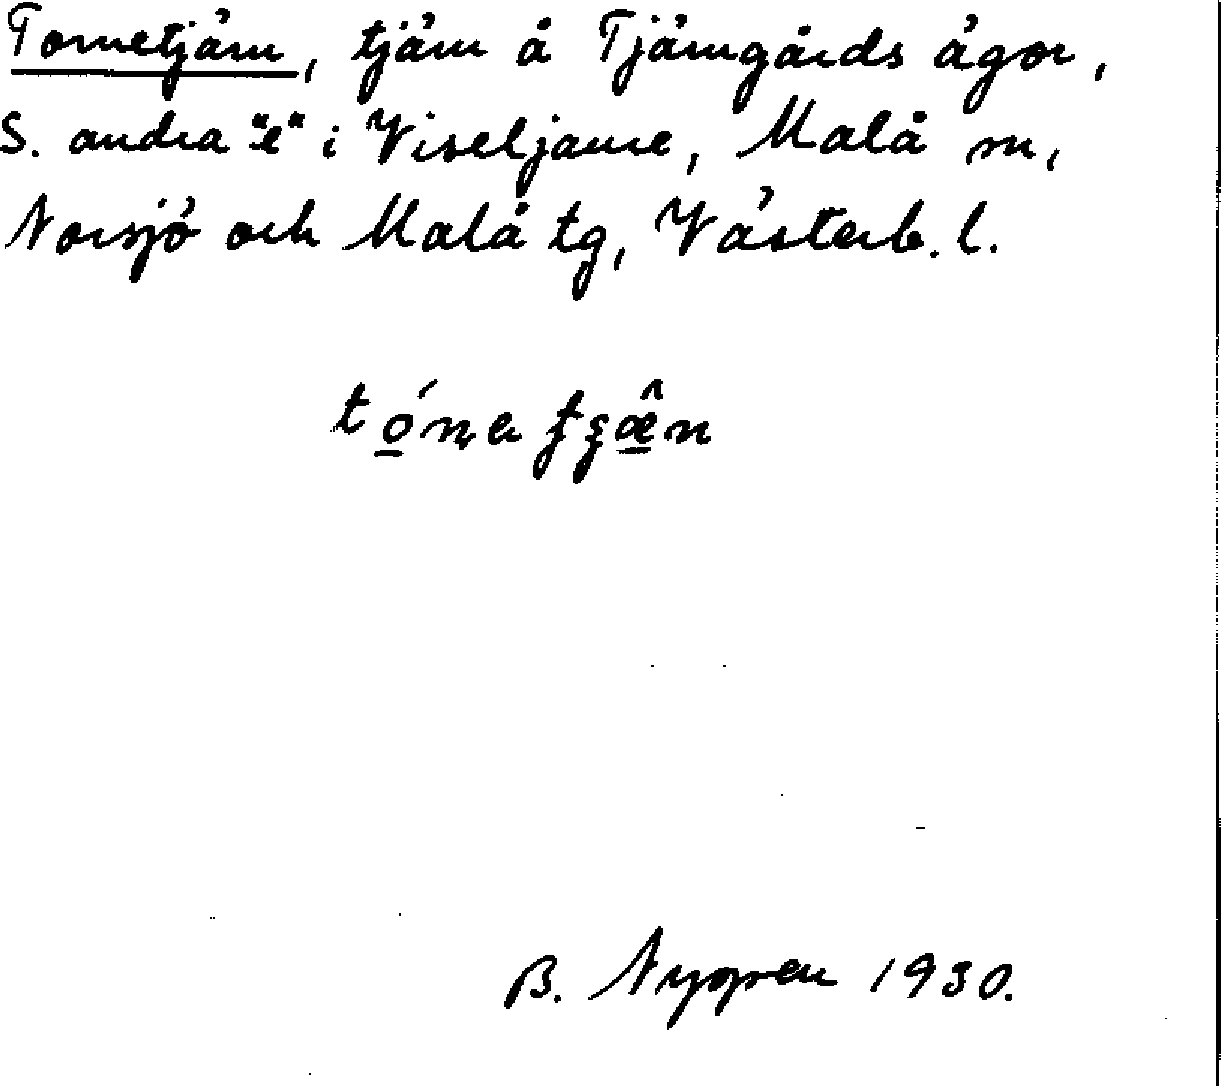 Tornetjärn, tjärn å Tjärngårds ägor,
S. andra "e" i Viseljaure, Malå sn,
Norsjö och Malå tg, Västerb. l.
B. Nygren 1930.